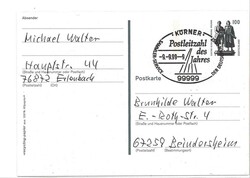 Absender
Michael Walter
Hauptstr. 44
(Straße und Hausnummer oder Postfach)
76872 Erlenbach
(Postleitzahl) (Ort)
KÖRNER
Postleitzahl
des
Jahres
-9.-9.99-9
99999
100
Postkarte
Brunhilde Walter
E.-Roth-Str. 4
(Straße und Hausnummer oder Postfach)
67259 Beindersheim
(Postleitzahl) (Bestimmungsort)